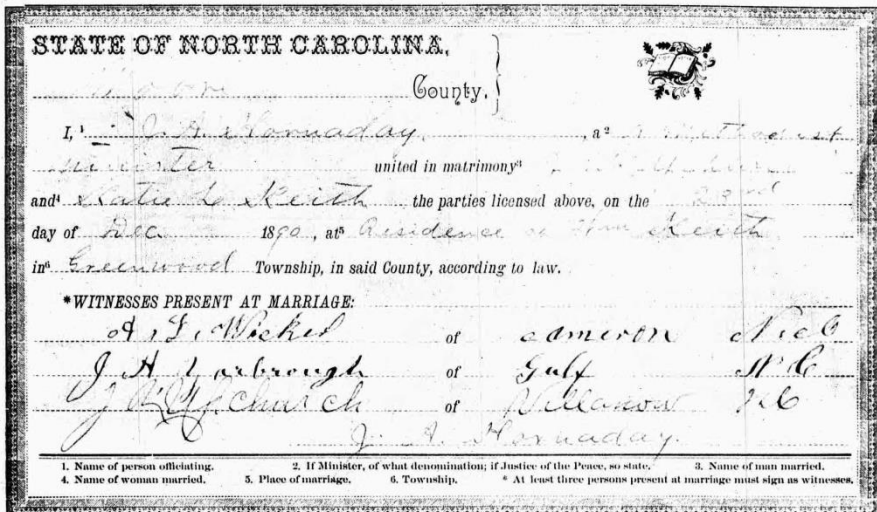 STATE OF NORTH CAROLINA,
Moore County, }
I, ¹ J. A. Hornaday, a² Methodist
Minister united in matrimony³
and⁴ Katie L Keith the parties licensed above, on the 23rd
day of Dec 1890, at⁵ Residence of Wm Keith
in⁶ Greenwood Township, in said County, according to law.
*WITNESSES PRESENT AT MARRIAGE:
A. L. Wicker of Cameron N C
J H Yarbrough of Gulf N C
Church of Villanow N C
J. A. Hornaday.
1. Name of person officiating. 2. If Minister, of what denomination; if Justice of the Peace, so state. 3. Name of man married.
4. Name of woman married. 5. Place of marriage. 6. Township. * At least three persons present at marriage must sign as witnesses.